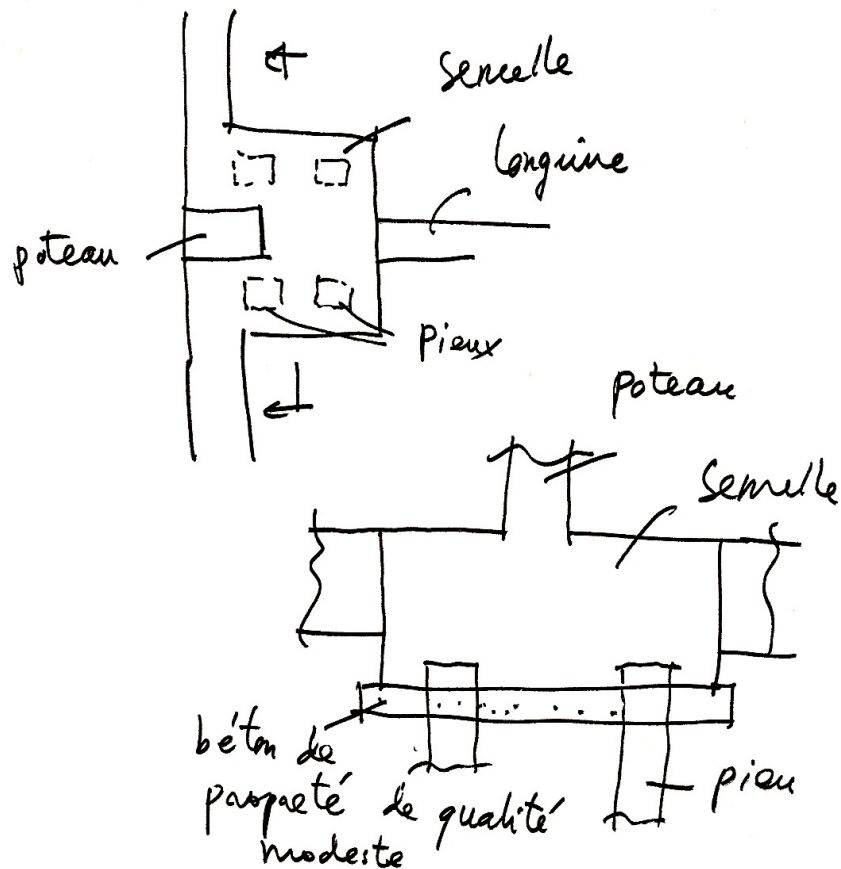 Semelle
longrine
poteau
pieux
poteau
Semelle
béton de
propreté de qualité
modeste
pieu